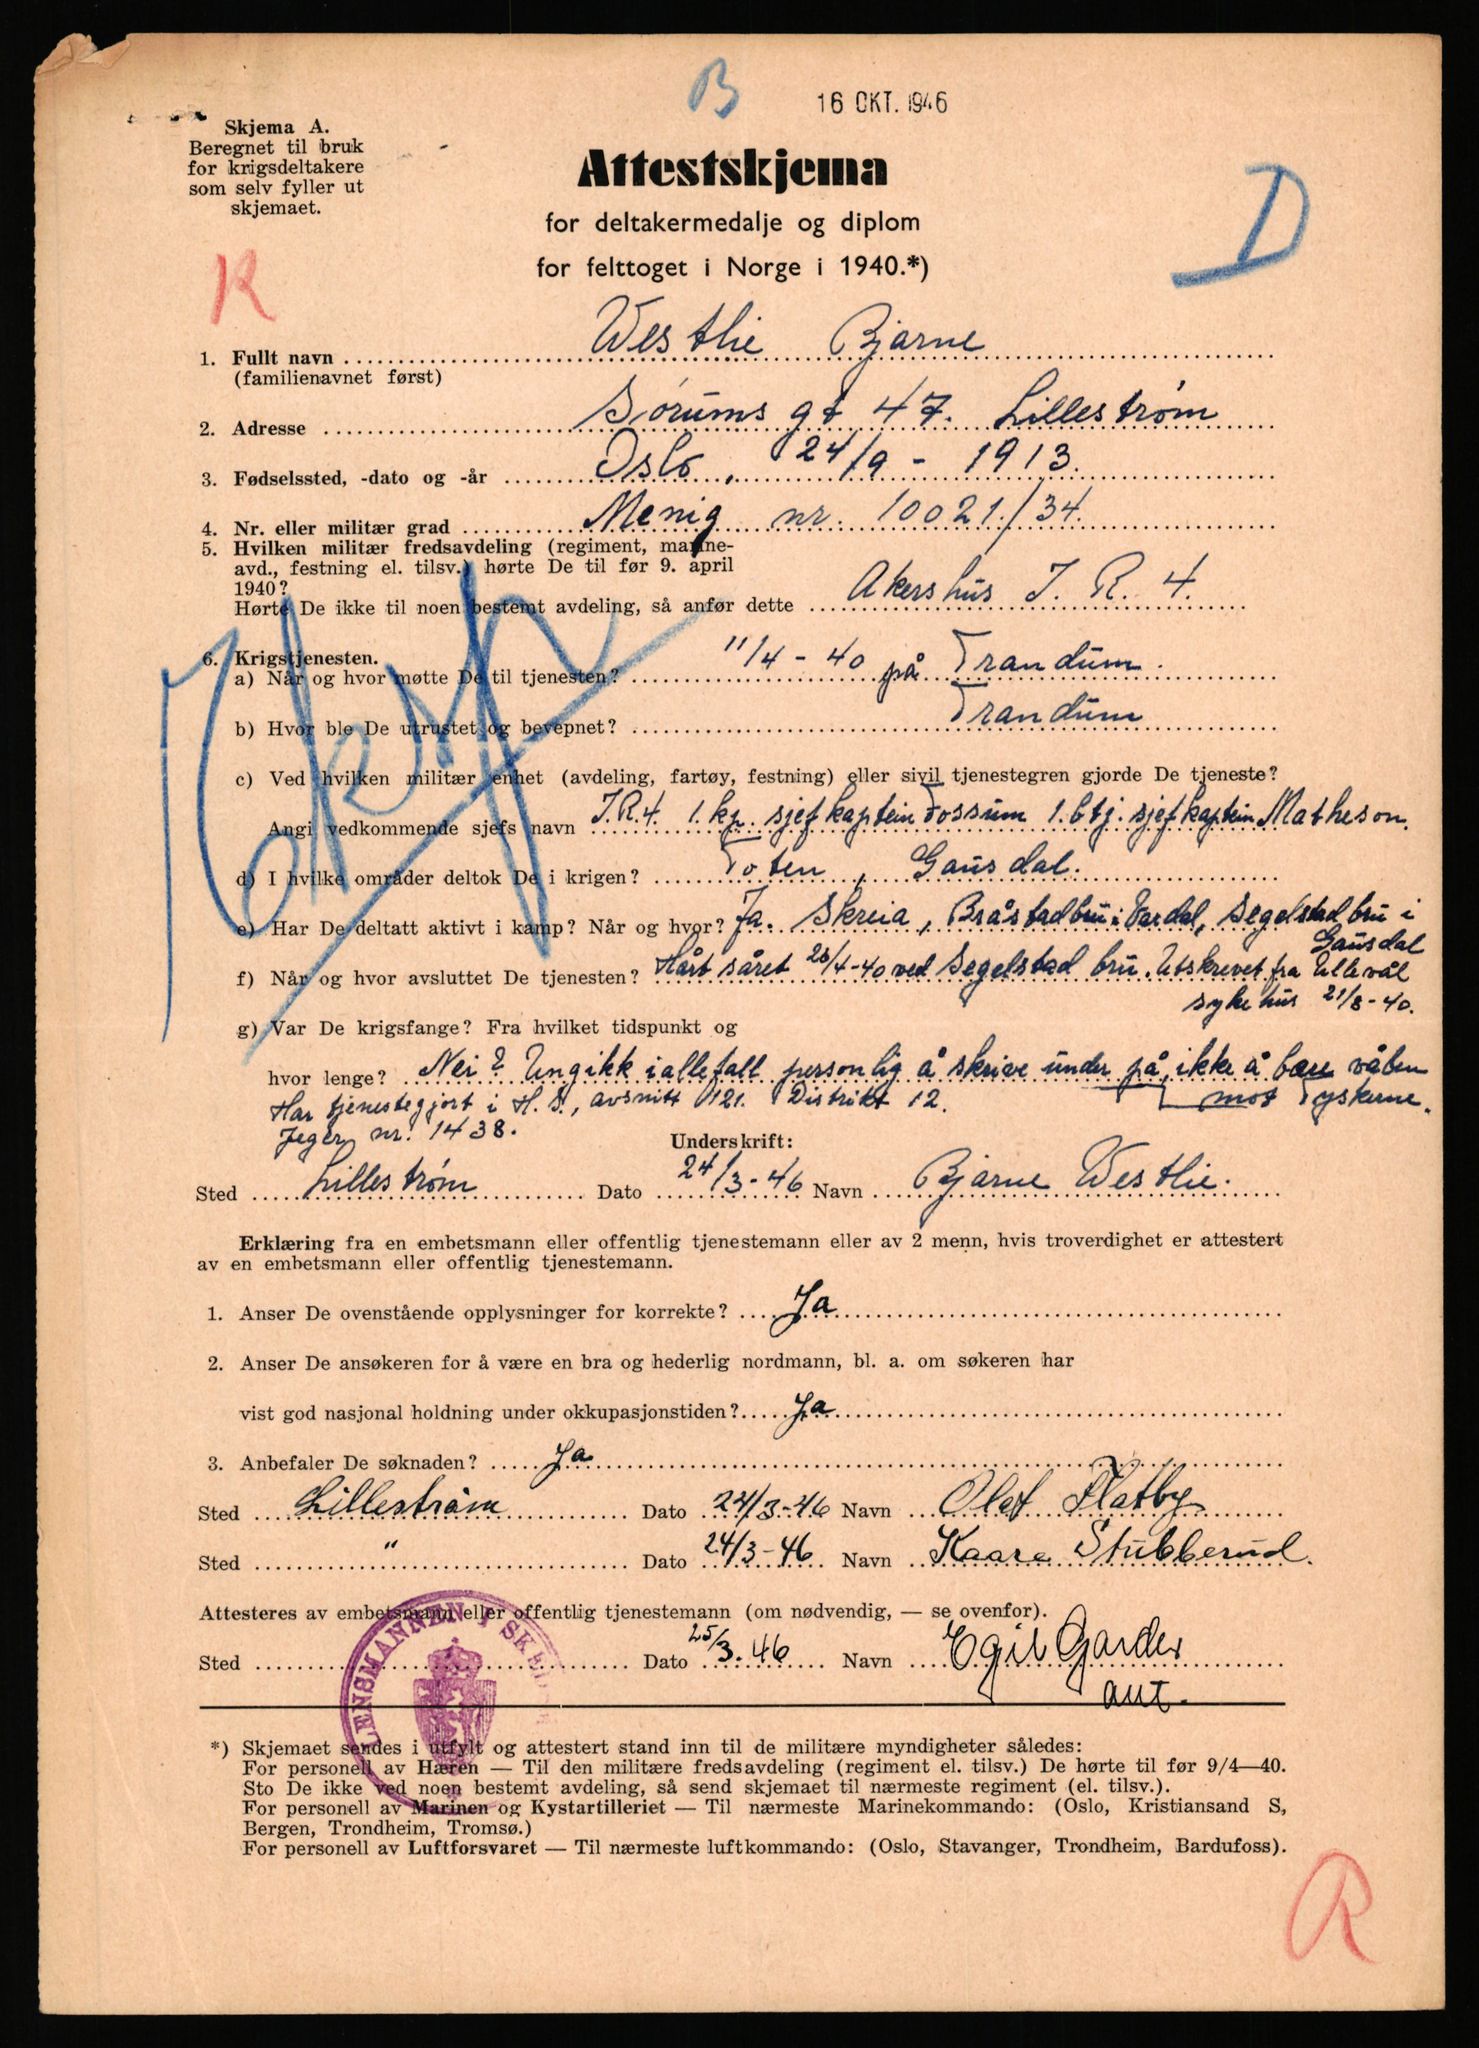 B
16 OKT. 1946
Skjema A.
Beregnet til bruk
for krigsdeltakere
som selv fyller ut
skjemaet.
Attestskjema
for deltakermedalje og diplom
for felttoget i Norge i 1940.*)
D
K
1. Fullt navn Westlie Bjarne
(familienavnet først)
2. Adresse Sørums gt 47. Lillestrøm
3. Fødselssted, -dato og -år Oslo, 24/9 - 1913.
4. Nr. eller militær grad Menig nr. 10021/34.
5. Hvilken militær fredsavdeling (regiment, marine-
avd., festning el. tilsv.) hørte De til før 9. april
1940?
Hørte De ikke til noen bestemt avdeling, så anfør dette Akershus I. R. 4.
6. Krigstjenesten.
a) Når og hvor møtte De til tjenesten? 11/4 - 40 på Trandum.
b) Hvor ble De utrustet og bevepnet? Trandum
c) Ved hvilken militær enhet (avdeling, fartøy, festning) eller sivil tjenestegren gjorde De tjeneste?
Angi vedkommende sjefs navn I.R.4. 1. kp. sjef kaptein Fossum 1. btj. sjef kaptein Matheson.
d) I hvilke områder deltok De i krigen? Toten, Gausdal.
e) Har De deltatt aktivt i kamp? Når og hvor? Ja. Skreia, Bråstadbru i Vardal, Segelstad bru i
Gausdal
f) Når og hvor avsluttet De tjenesten? Hårt såret 28/4-40 ved Segelstad bru. Utskrevet fra Ullevål
sykehus 21/8-40.
g) Var De krigsfange? Fra hvilket tidspunkt og
hvor lenge? Nei? Ungikk iallefall personlig å skrive under på, ikke å bære våben
mot Tyskerne.
Har tjenestegjort i H. S., avsnitt 121. Distrikt 12.
Jeger nr. 1438.
Underskrift:
Sted Lillestrøm Dato 24/3-46 Navn Bjarne Westlie.
Erklæring fra en embetsmann eller offentlig tjenestemann eller av 2 menn, hvis troverdighet er attestert
av en embetsmann eller offentlig tjenestemann.
1. Anser De ovenstående opplysninger for korrekte? Ja
2. Anser De ansøkeren for å være en bra og hederlig nordmann, bl. a. om søkeren har
vist god nasjonal holdning under okkupasjonstiden? Ja
3. Anbefaler De søknaden? Ja
Sted Lillestrøm Dato 24/3-46 Navn Olaf Flatby
Sted " Dato 24/3-46 Navn Kaare Stubberud.
Attesteres av embetsmann eller offentlig tjenestemann (om nødvendig, — se ovenfor).
Sted Dato 25/3.46 Navn Egil Garder
aut.
LENSMANNEN I
*) Skjemaet sendes i utfylt og attestert stand inn til de militære myndigheter således:
For personell av Hæren — Til den militære fredsavdeling (regiment el. tilsv.) De hørte til før 9/4—40.
Sto De ikke ved noen bestemt avdeling, så send skjemaet til nærmeste regiment (el. tilsv.).
For personell av Marinen og Kystartilleriet — Til nærmeste Marinekommando: (Oslo, Kristiansand S,
Bergen, Trondheim, Tromsø.)
For personell av Luftforsvaret — Til nærmeste luftkommando: (Oslo, Stavanger, Trondheim, Bardufoss).
R